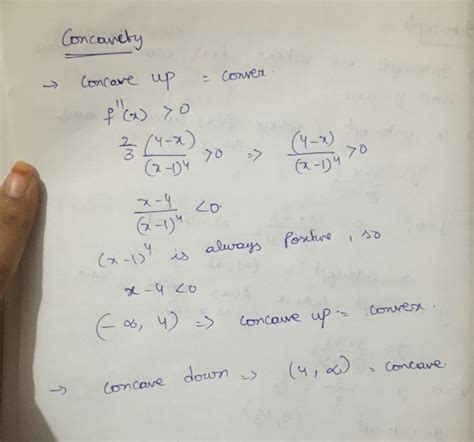 Concavety
→ concave up = convex.
f''(x) > 0
2/3 (4-x)/(x-1)^4 > 0 => (4-x)/(x-1)^4 > 0
x-4/(x-1)^4 < 0.
(x-1)^4 is always Positive, so
x-4 < 0
(-∞, 4) => concave up = convex.
→ concave down => (4, ∞) = concave.